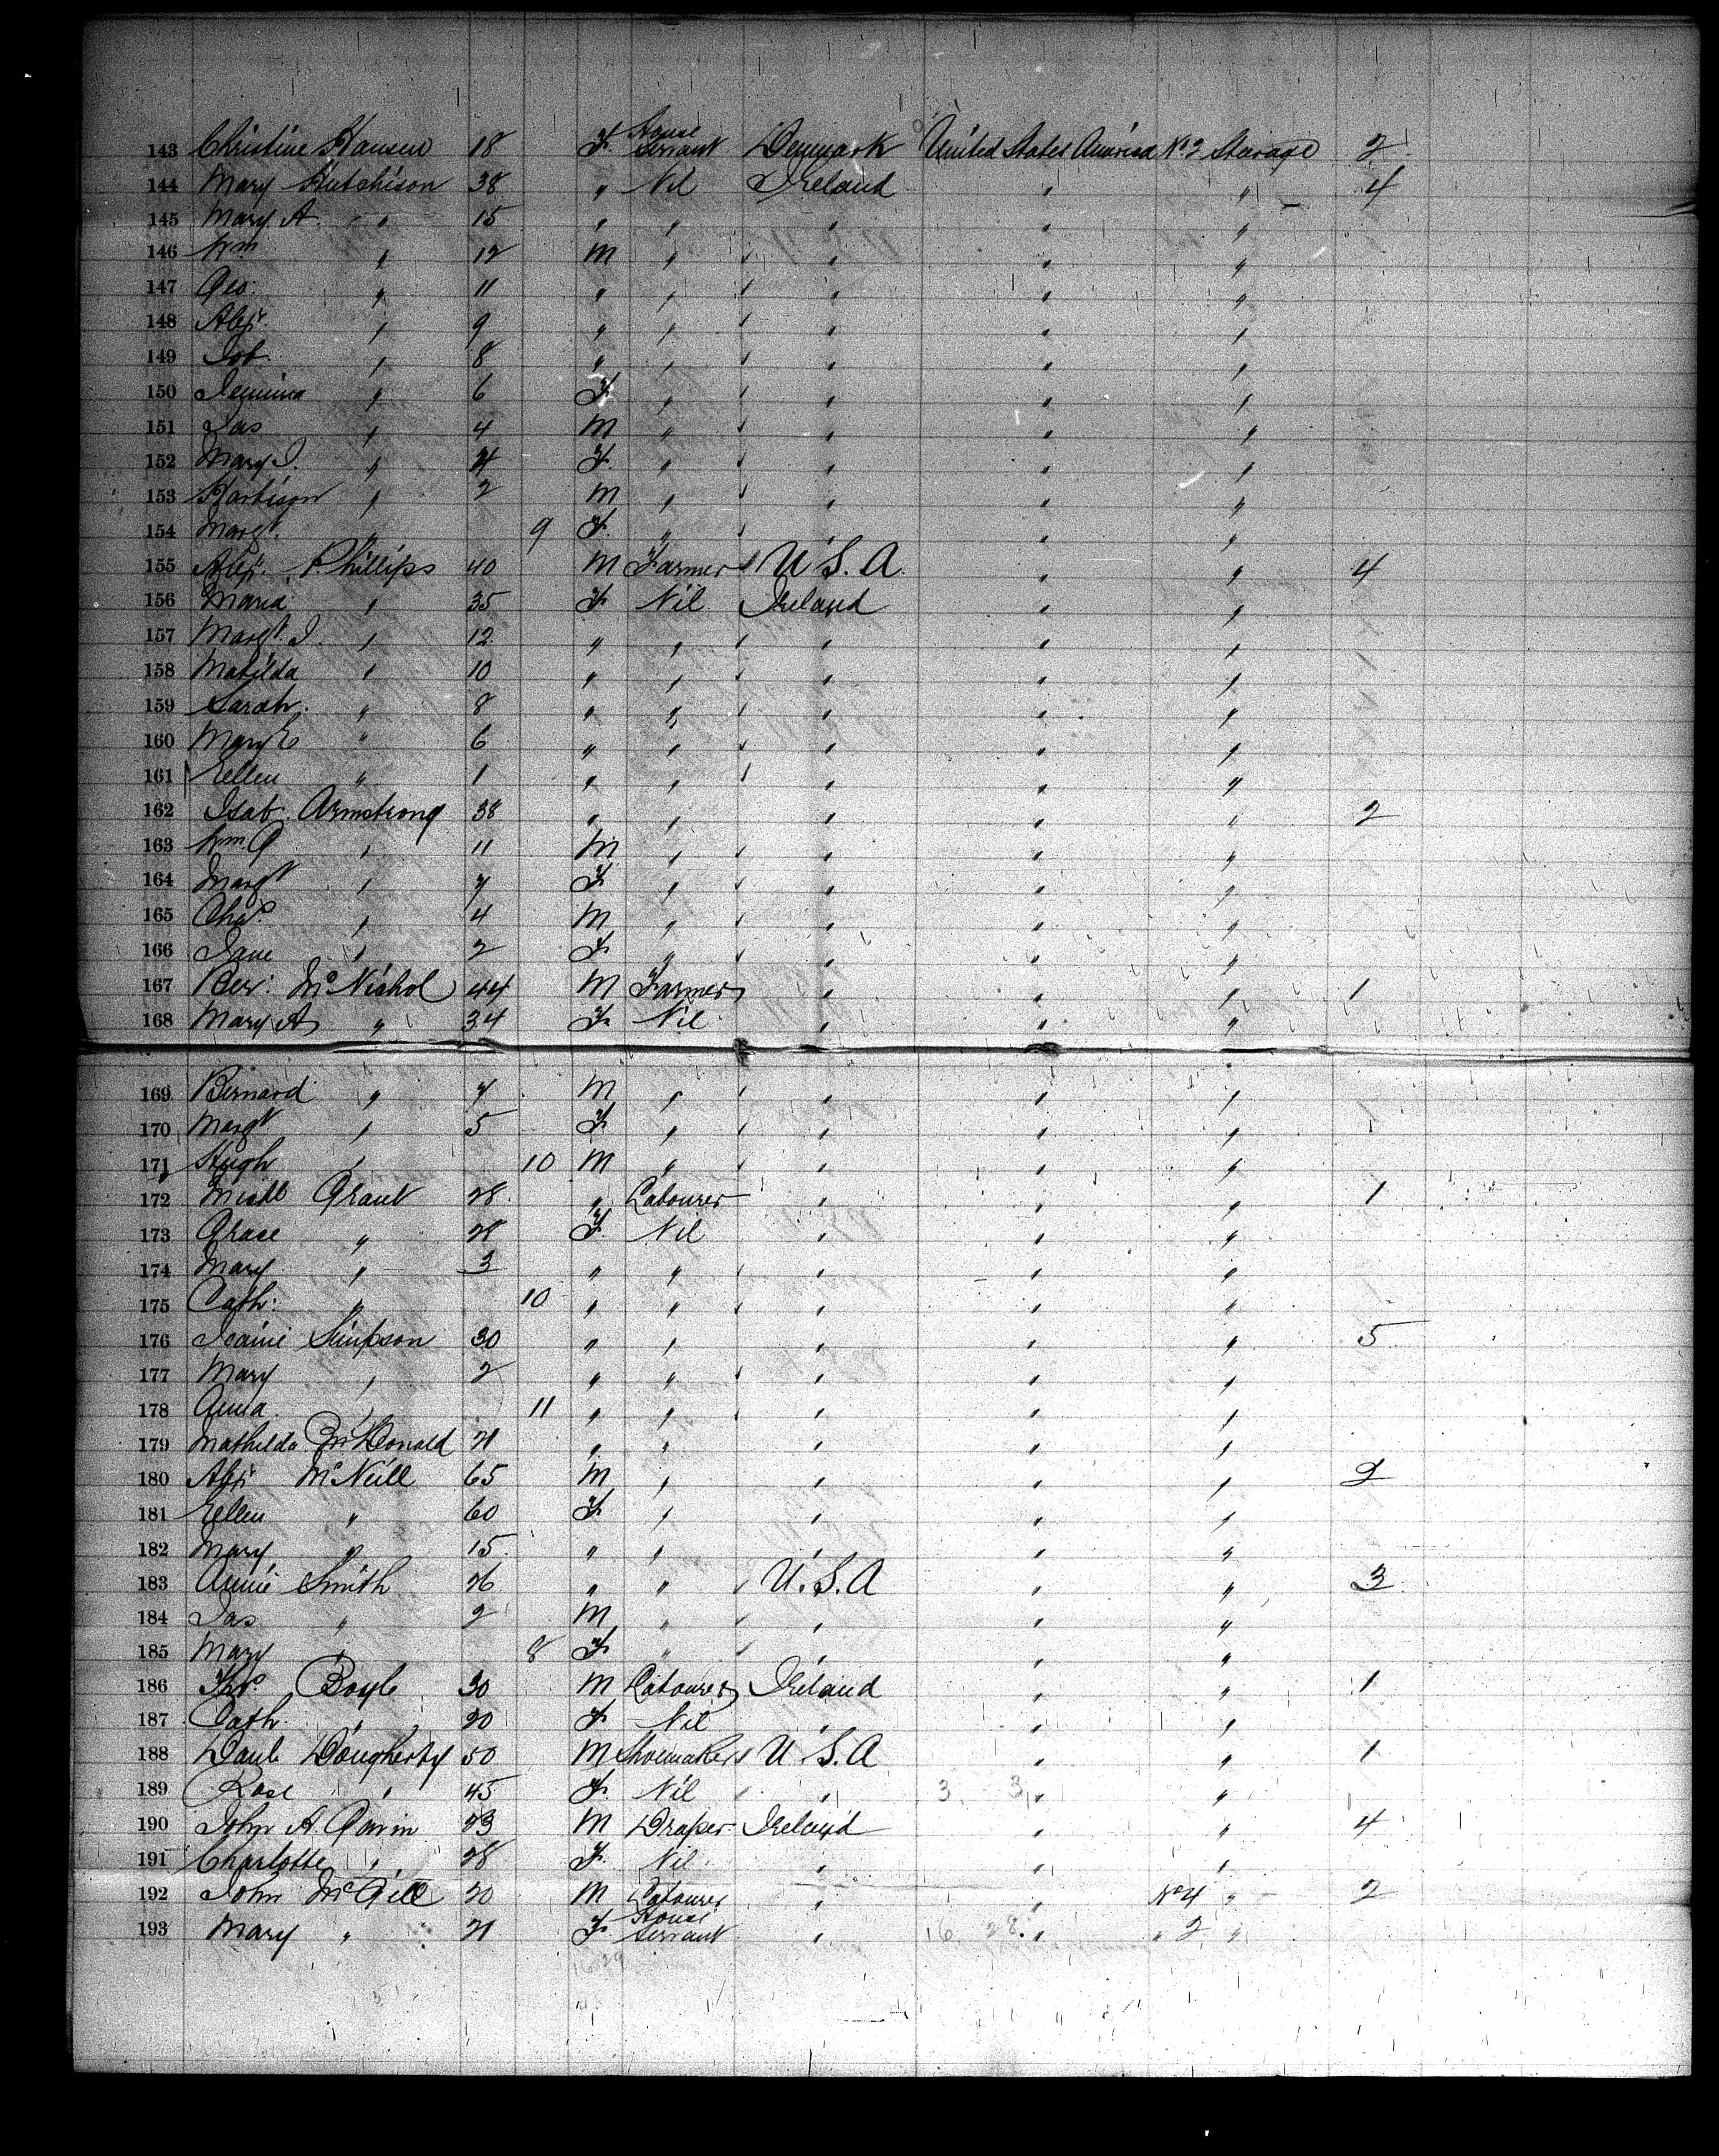 143 Christine Hansen 18 F House Servant Denmark United States America No 2 Stearage 2
144 Mary Hutchison 38 " Nil Ireland " " 4
145 Mary A. " 15 " " " " "
146 Wm " 12 M " " " "
147 Geo: " 11 " " " " "
148 Alexr. " 9 " " " " "
149 Rob. " 8 " " " " "
150 Jemima " 6 F " " " "
151 Jas " 4 M " " " "
152 Mary J. " 4 F. " " " "
153 Harbison " 2 M " " " "
154 Margt. " 9 F. " " " "
155 Alexr. Phillips 40 M Farmer U S. A. " " 4
156 Maria " 35 F Nil Ireland " "
157 Margt. J. " 12 " " " " "
158 Matilda " 10 " " " " "
159 Sarah. " 8 " " " " "
160 Mary E " 6 " " " " "
161 Ellen " 1 " " " " "
162 Isab. Armstrong 38 " " " " " 2
163 Wm. G " 11 M " " " "
164 Margt " 7 F " " " "
165 Chas. " 4 M " " " "
166 Jane " 2 F " " " "
167 Ber: McNichol 44 M Farmer " " " 1
168 Mary A " 34 F. Nil " " "
169 Bernard " 7 M " " " "
170 Margt " 5 F. " " " "
171 Hugh " 10 M " " " "
172 Michl Grant 28 " Labourer " " " 1
173 Grace " 28 F. Nil " " "
174 Mary " 3 " " " " "
175 Cath: " 10 " " " " "
176 Jeanie Simpson 30 " " " " " 5
177 Mary " 2 " " " " "
178 Anna " 11 " " " " "
179 Mathilda McDonald 21 " " " " "
180 Alexr McNeill 65 M " " " " 2
181 Ellen " 60 F " " " "
182 Mary " 15 " " " " "
183 Annie Smith 26 " " U. S. A " " 3
184 Jas " 2 M " " " "
185 Mary " 8 F " " " "
186 Boyle 30 M Labourer Ireland " " 1
187 Cath. " 20 F Nil " " "
188 Danl Dougherty 50 M Shoemaker U. S. A " " 1
189 Rose " 45 F. Nil " " "
190 John A. Gavin 23 M Draper Ireland " " 4
191 Charlotte " 28 F. Nil " " "
192 John McGill 20 M Labourer " " No 4 " 2
193 Mary " 21 F. House Servant " " " 2 "